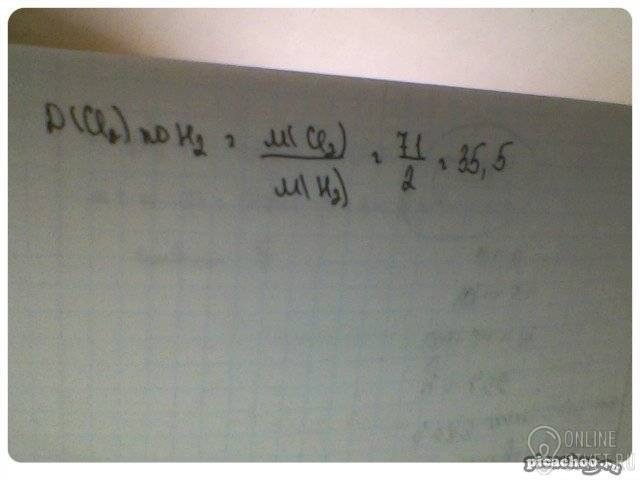 D(Cl₂) по H₂ = M(Cl₂)/M(H₂) = 71/2 = 35,5
ONLINE
picachoo.ru